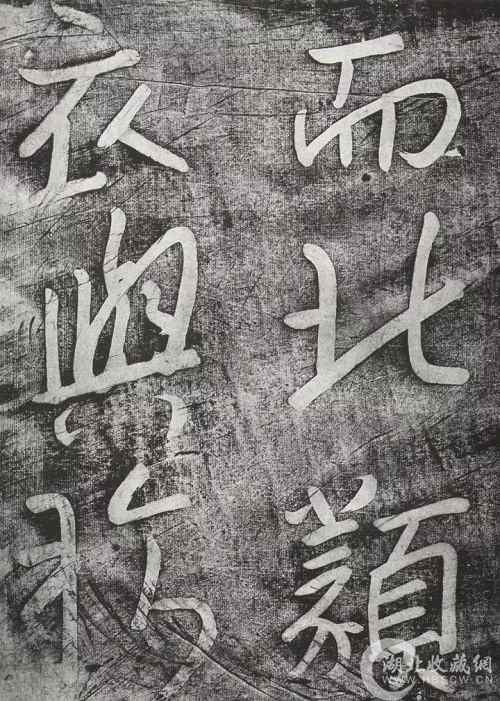 而北顏
衣與
湖北收藏網
WWW.HBSCW.CN